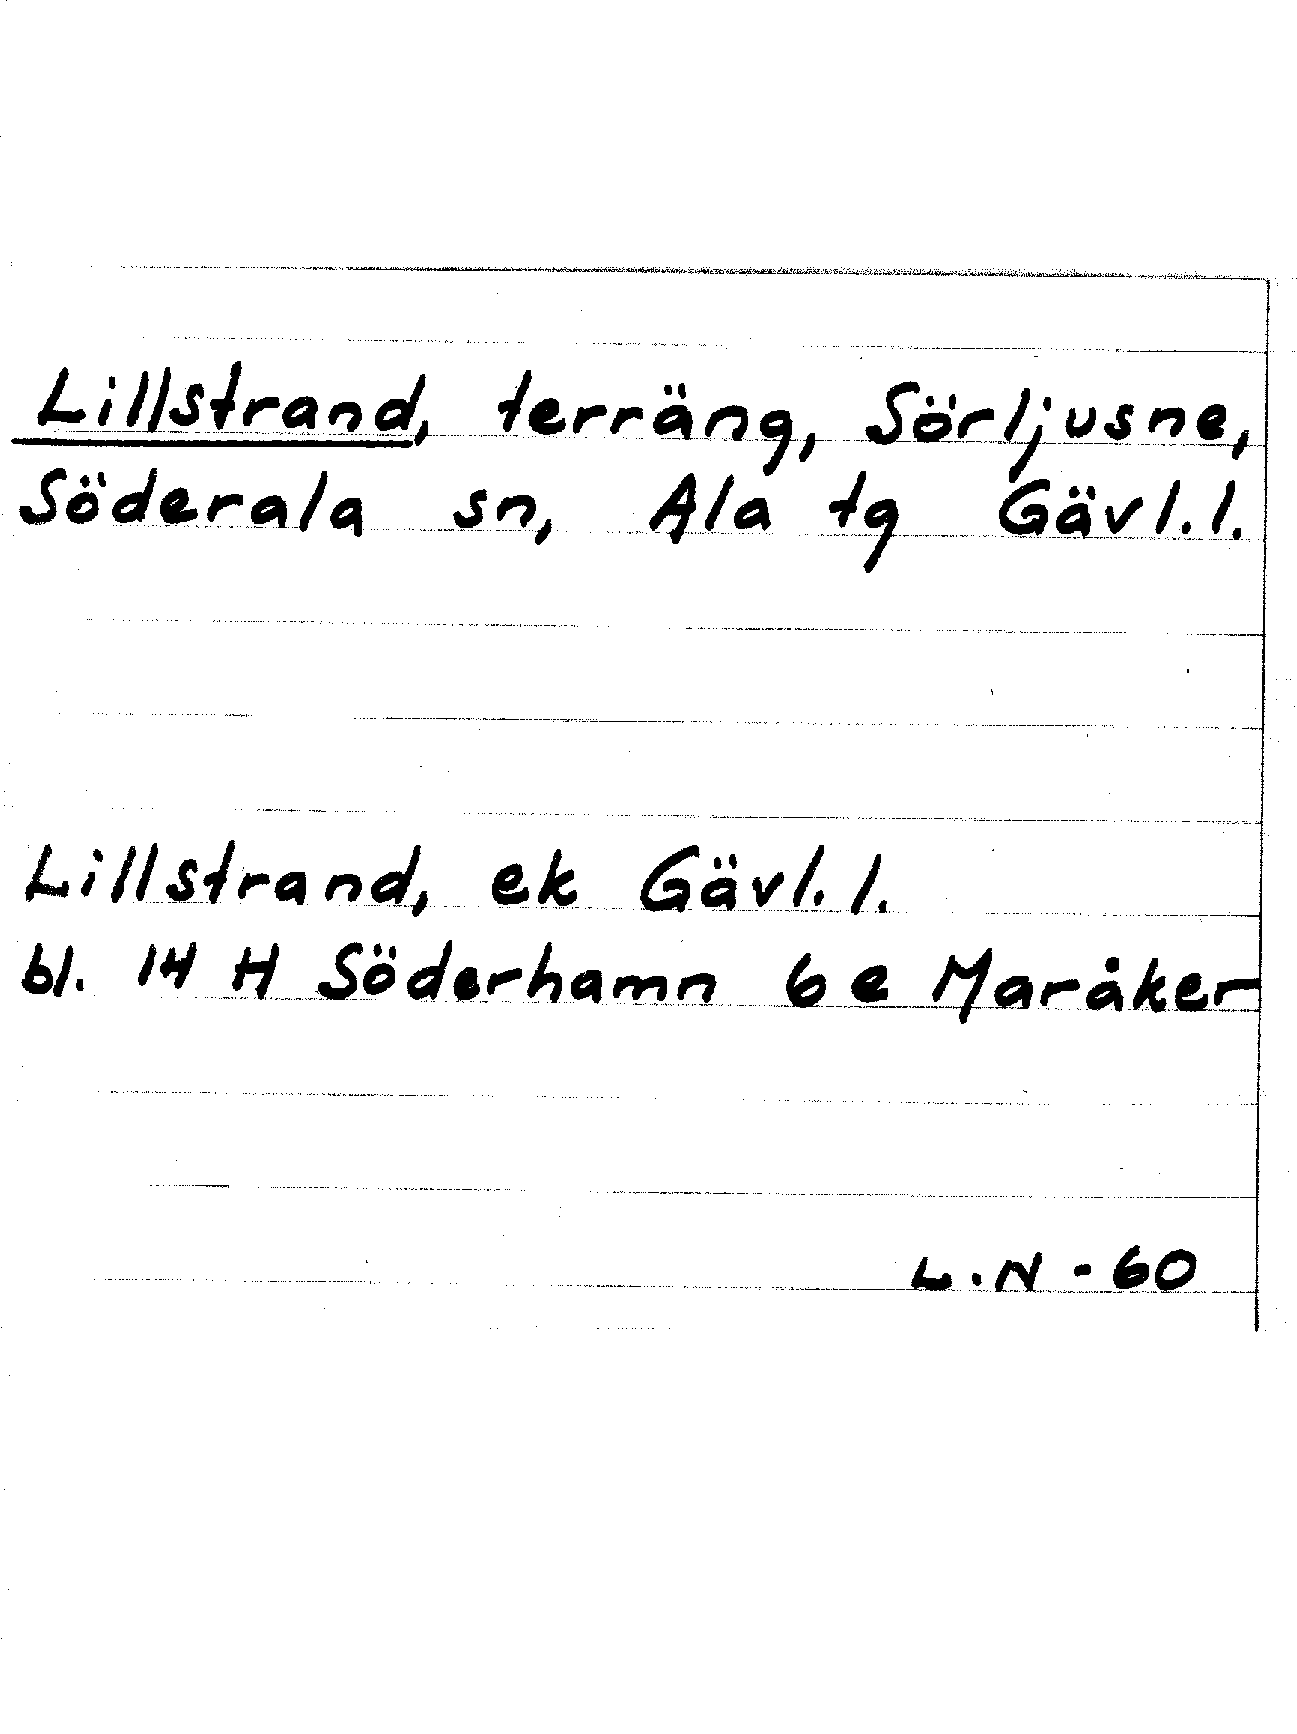 Lillstrand, terräng, Sörljusne,
Söderala sn, Ala tg Gävl.l.
Lillstrand, ek Gävl.l.
bl. 14 H Söderhamn 6e Maråker
L.N - 60